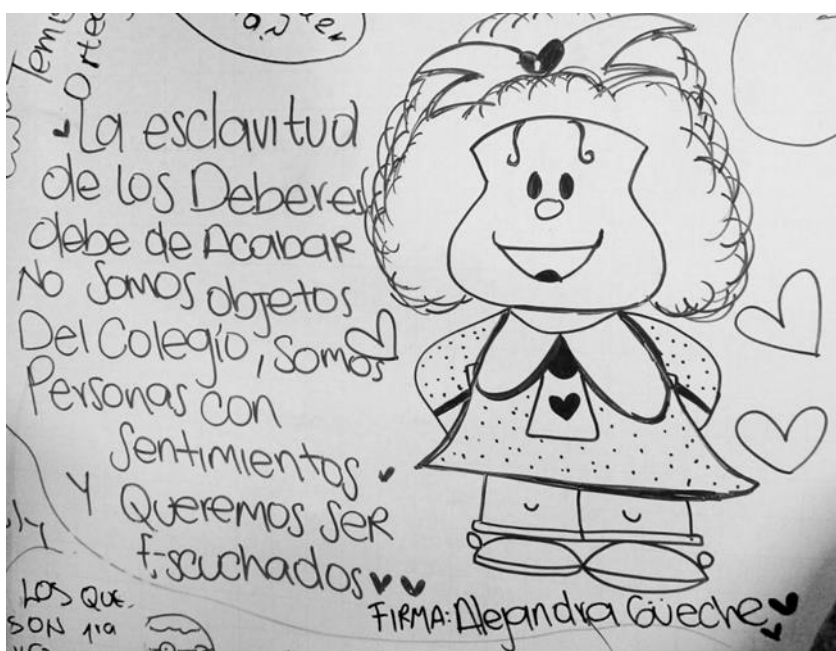 Temi
Orte
La esclavitud
de los Deberes
debe de Acabar
No Somos objetos
Del Colegio, Somos
Personas con
Sentimientos
Y Queremos SER
Escuchados
FIRMA: Alejandra Güeche
LOS QUE.
SON